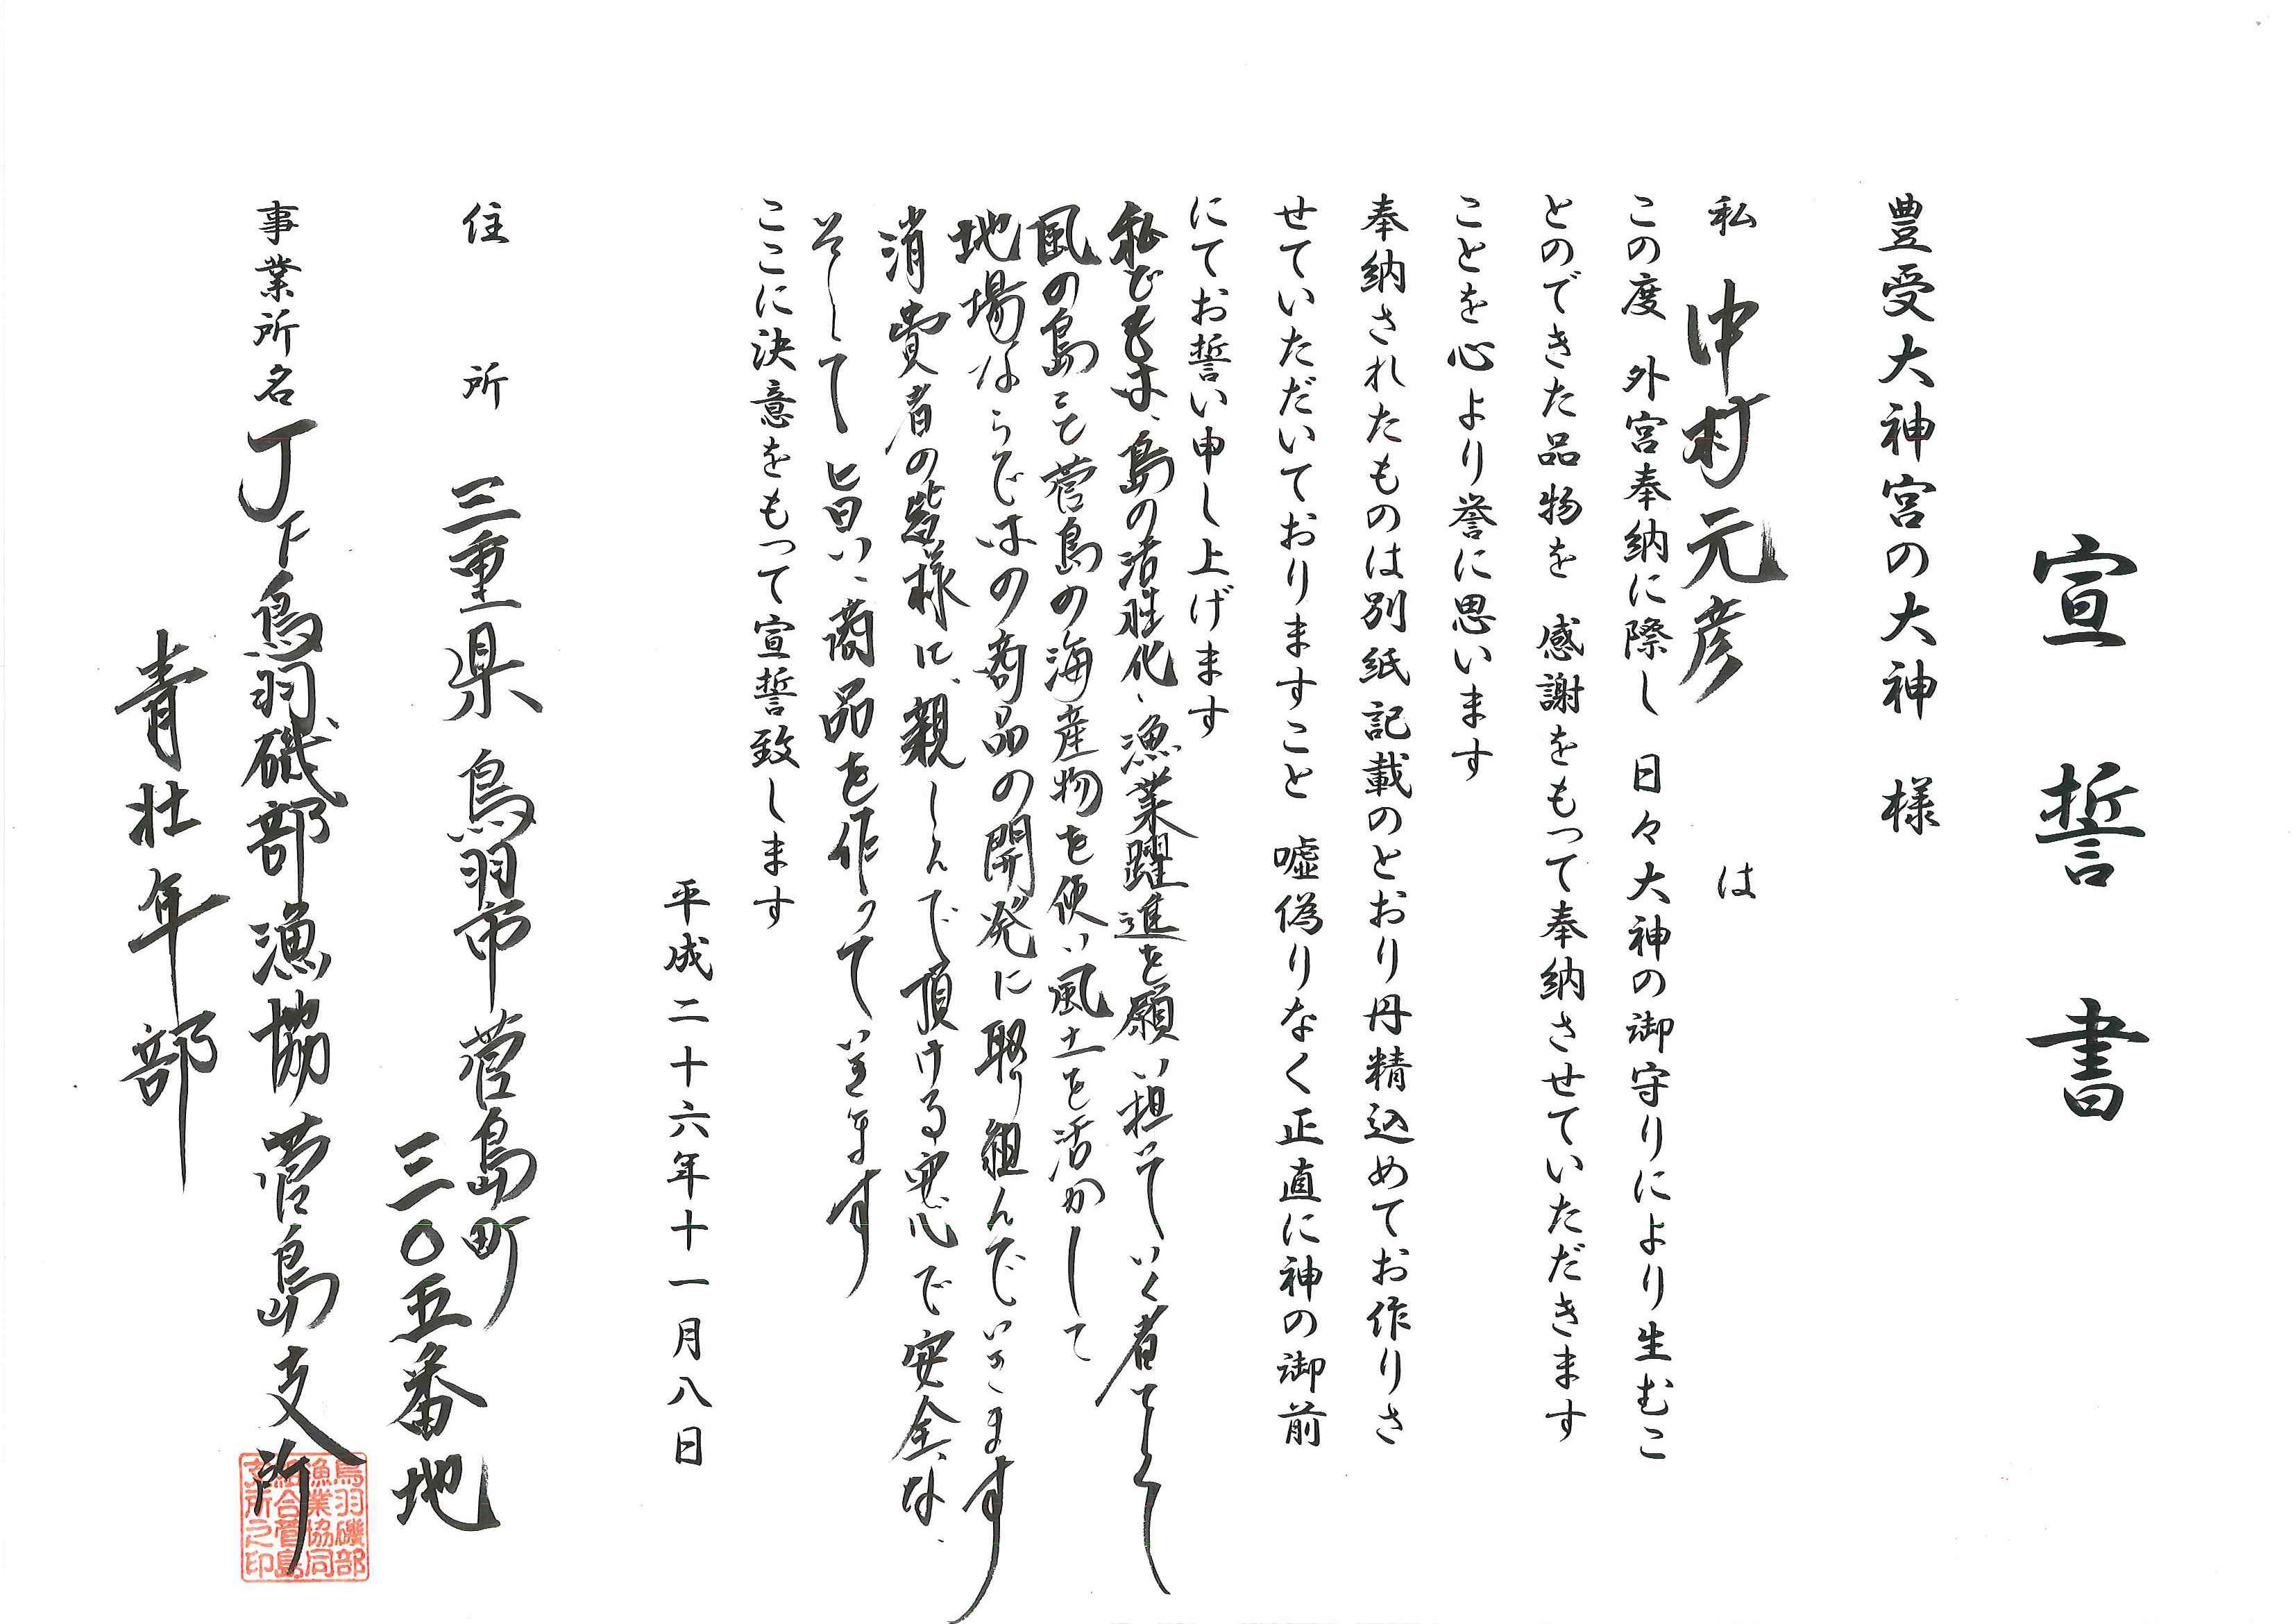 宣誓書
豊受大神宮の大神 様
私 中村元彦 は
この度 外宮奉納に際し 日々大神の御守りにより生むこ
とのできた品物を 感謝をもって奉納させていただきます
ことを心より誉に思います
奉納されたものは別紙記載のとおり丹精込めてお作りさ
せていただいておりますこと 嘘偽りなく正直に神の御前
にてお誓い申し上げます
私どもは、島の活性化、漁業躍進を願い担っていく者として
風の島こと菅島の海産物を使い風土を活かして
地場ならではの商品の開発に取り組んでいきます
消費者の皆様に、親しんで頂ける安心で安全な、
そして旨い、商品を作っていきます
ここに決意をもって宣誓致します
平成二十六年十一月八日
住所 三重県鳥羽市菅島町
三〇五番地
事業所名 JF鳥羽磯部漁協菅島支所
青壮年部
鳥羽磯部
漁業協同
組合菅島
支所之印